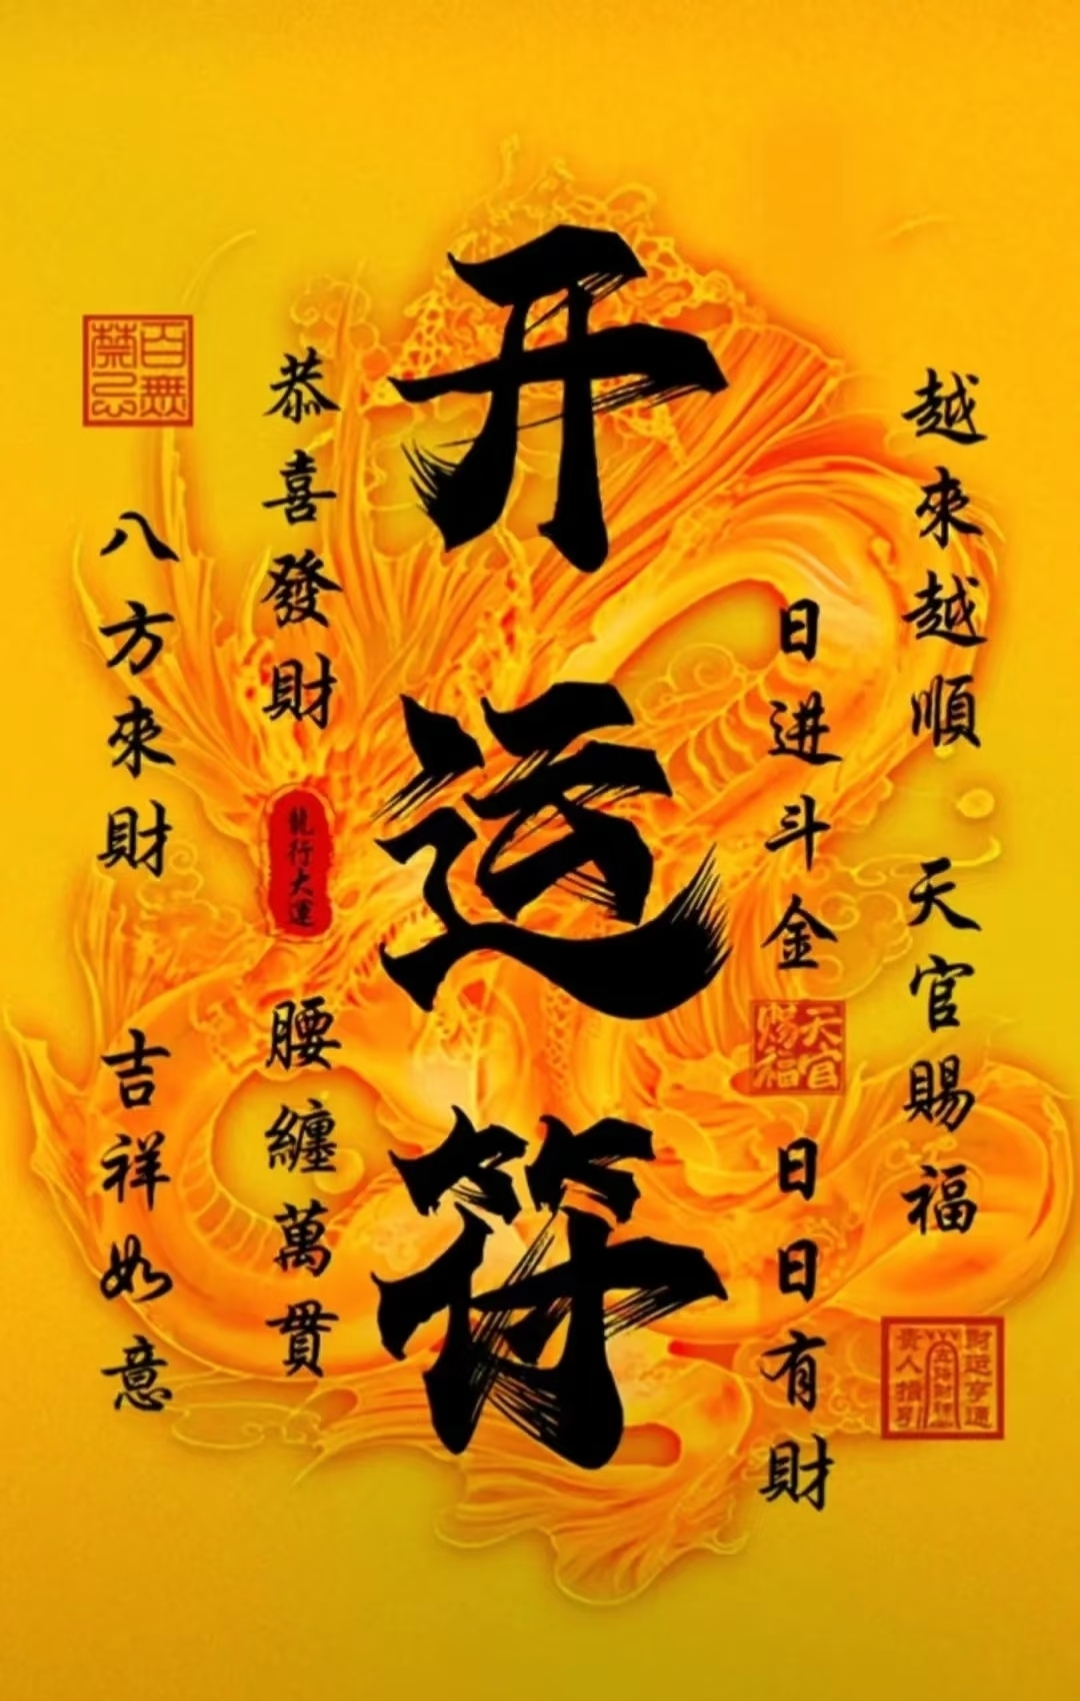 越來越順
天官賜福
財运亨通
貴人指引
日进斗金
天官
赐福
日日有財
开运符
恭喜發財
龍行大運
腰纏萬貫
百無
禁忌
八方來財
吉祥如意